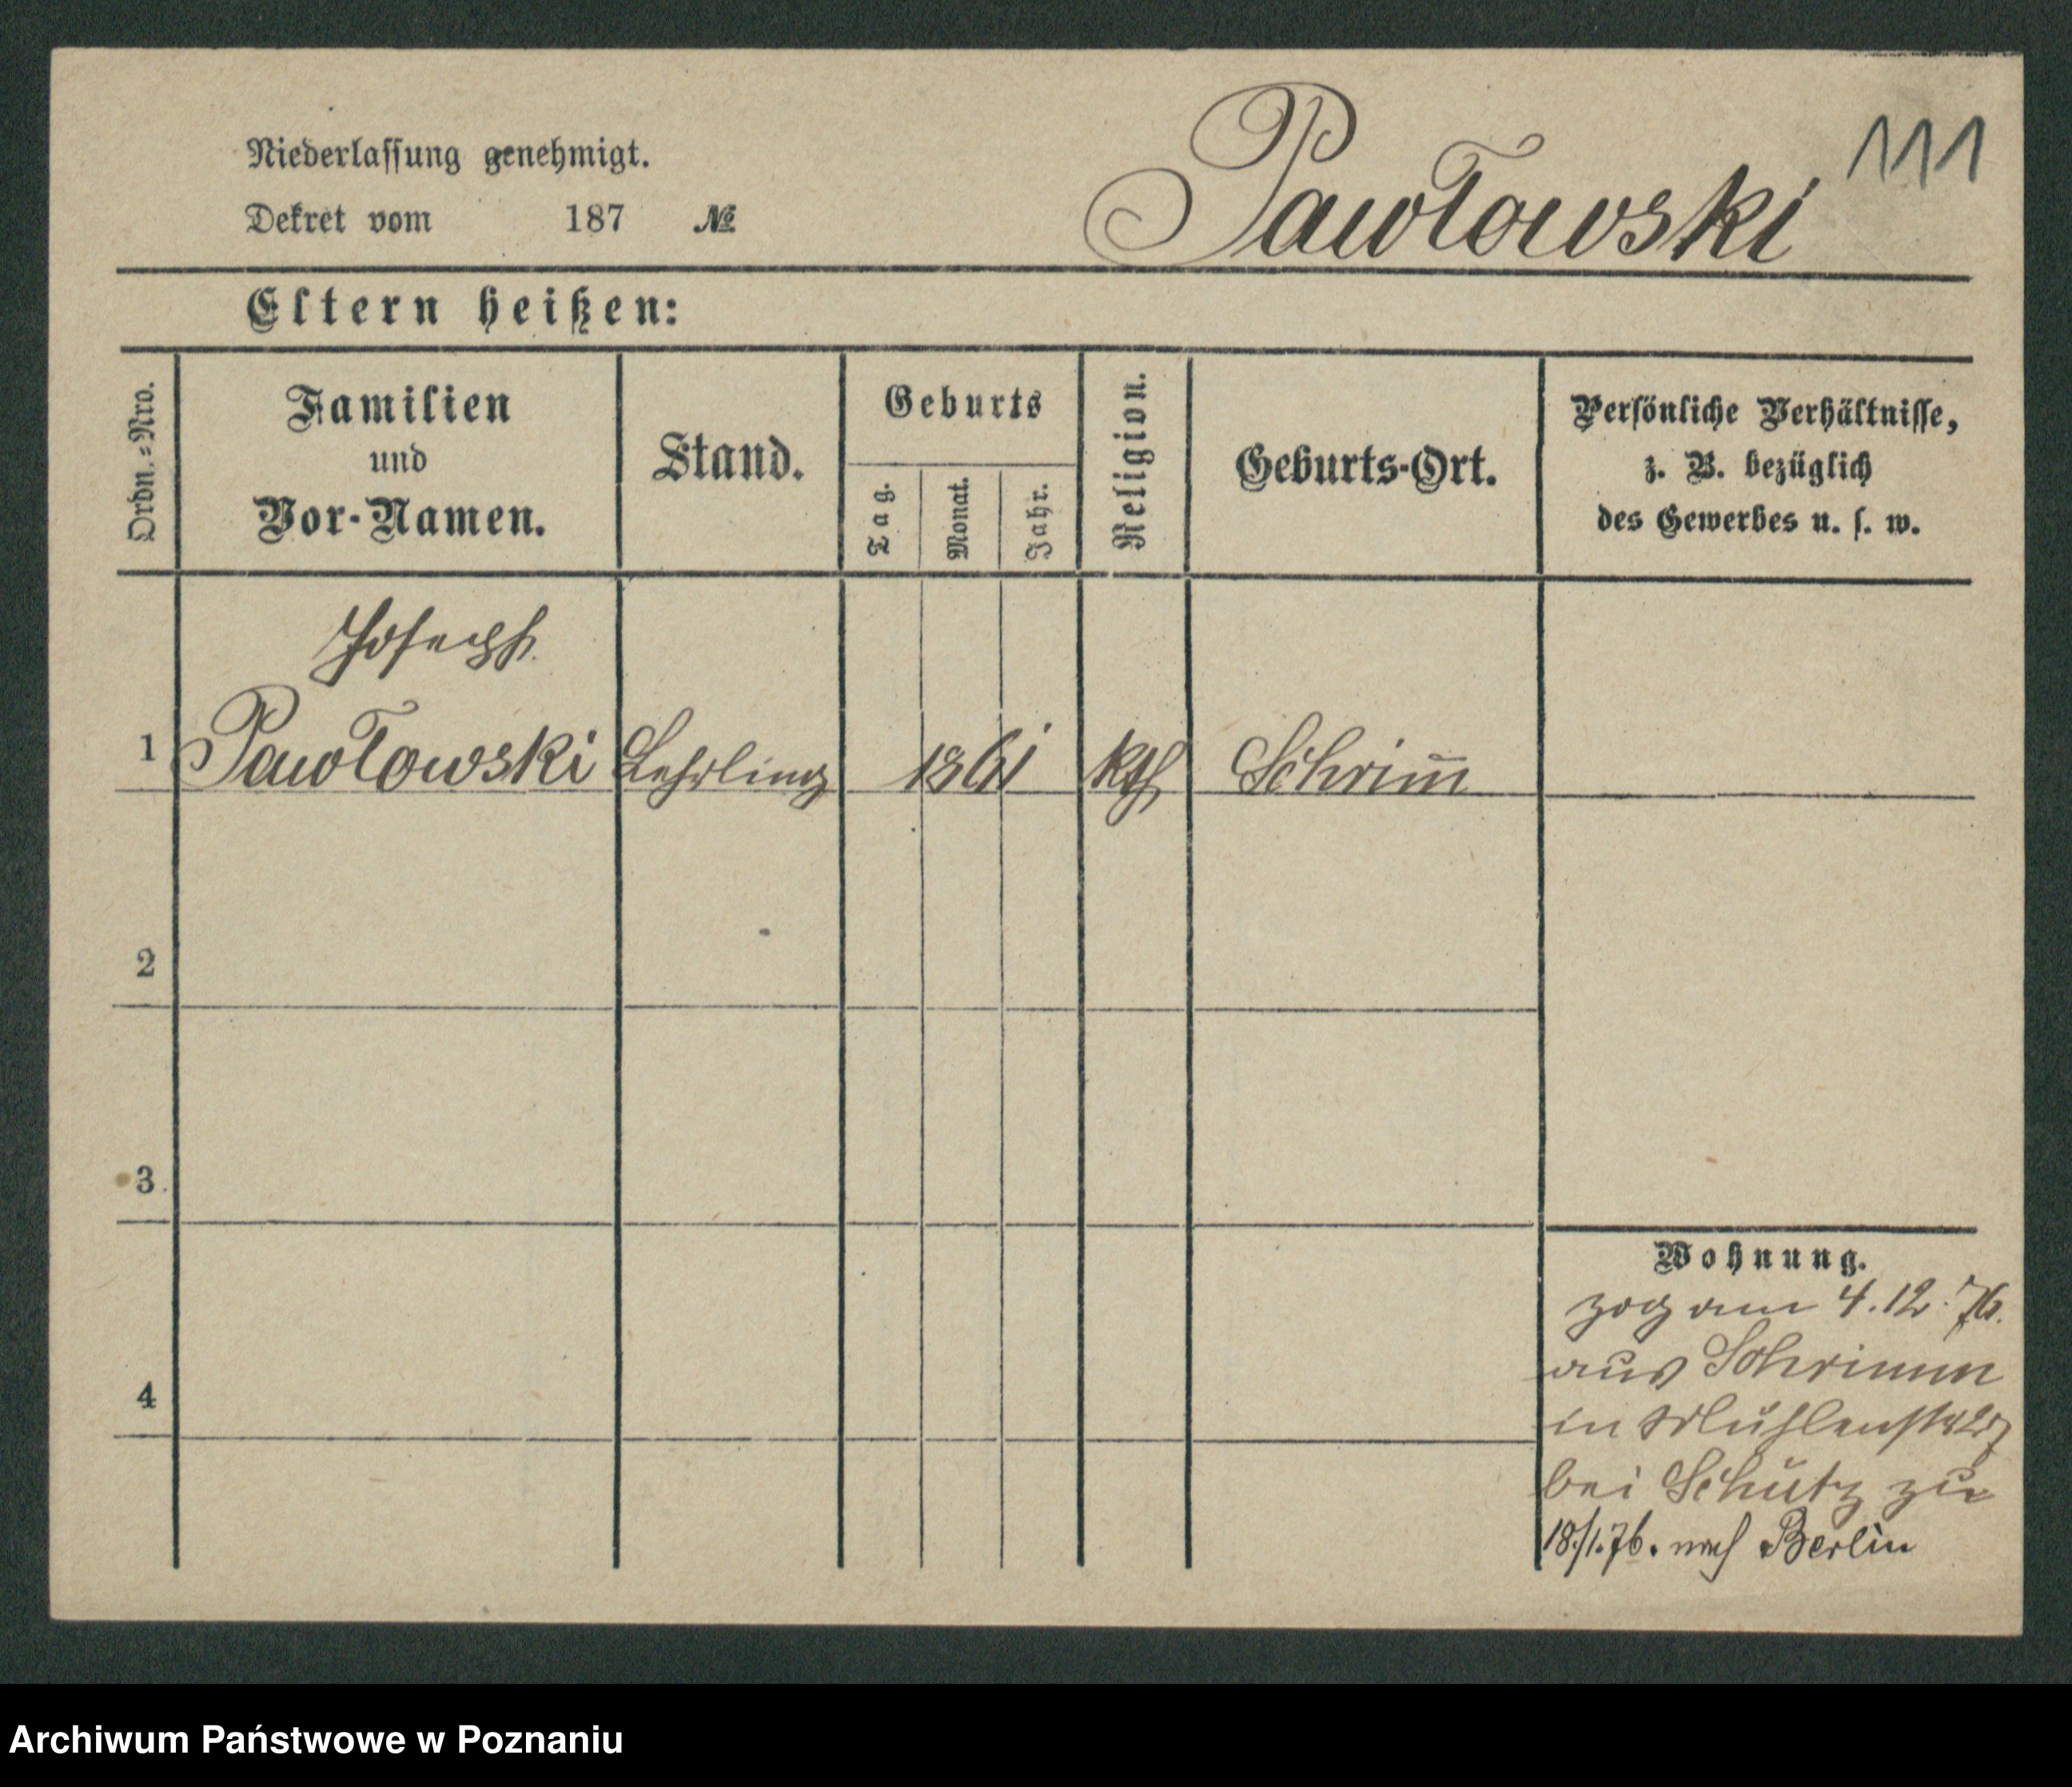 Niederlassung genehmigt.
Dekret vom 187 №
Pawłowski
111
Eltern heißen:
Ordn.=Nro.
Familien
und
Vor-Namen.
Stand.
Geburts
Tag.
Monat.
Jahr.
Religion.
Geburts-Ort.
Persönliche Verhältnisse,
z. B. bezüglich
des Gewerbes u. s. w.
Joseph
1 Pawłowski Lehrling 1861 kth Schrim̅
2
3
4
Wohnung.
zog am 4.12.76.
aus Schrimm
in
bei Schütz zu
18/1.76. nach Berlin
Archiwum Państwowe w Poznaniu